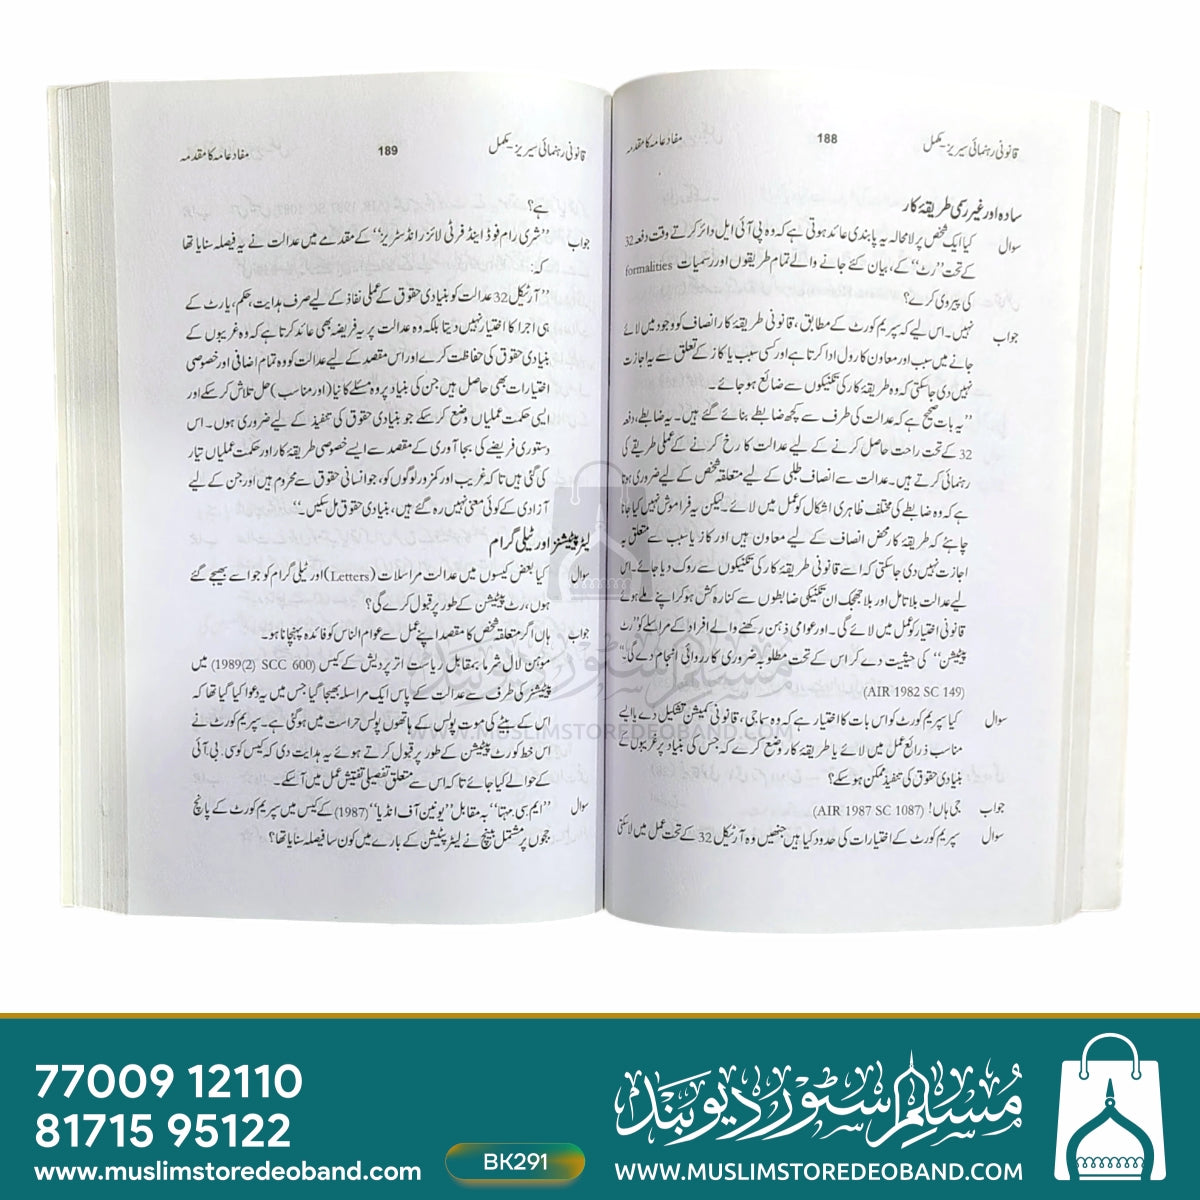 قانونی رہنمائی سیریز۔مکمل
188
مفاد عامہ کا مقدمہ
سادہ اور غیر رسمی طریقۂ کار
سوال کیا ایک شخص پر لامحالہ یہ پابندی عائد ہوتی ہے کہ وہ پی آئی ایل دائر کرتے وقت دفعہ 32
کے تحت ”رٹ“ کے، بیان کئے جانے والے تمام طریقوں اور رسمیات formalities
کی پیروی کرے؟
جواب نہیں۔ اس لیے کہ سپریم کورٹ کے مطابق، قانونی طریقۂ کار انصاف کو وجود میں لائے
جانے میں سبب اور معاون کا رول ادا کرتا ہے اور کسی سبب یا کاز کے تعلق سے یہ اجازت
نہیں دی جاسکتی کہ وہ طریقۂ کار کی تکنیکوں سے ضائع ہوجائے۔
”یہ بات صحیح ہے کہ عدالت کی طرف سے کچھ ضابطے بنائے گئے ہیں۔ یہ ضابطے، دفعہ
32 کے تحت راحت حاصل کرنے کے لیے عدالت کا رخ کرنے کے عملی طریقے کی
رہنمائی کرتے ہیں۔ عدالت سے انصاف طلبی کے لیے متعلقہ شخص کے لیے ضروری ہوتا
ہے کہ وہ ضابطے کی مختلف ظاہری اشکال کو عمل میں لائے۔ لیکن یہ فراموش نہیں کیا جانا
چاہئے کہ طریقۂ کار محض انصاف کے لیے معاون ہیں اور کاز یا سبب سے متعلق یہ
اجازت نہیں دی جاسکتی کہ اسے قانونی طریقۂ کار کی تکنیکوں سے روک دیا جائے۔ اس
لیے عدالت بلا تامل اور بلا جھجک ان تکنیکی ضابطوں سے کنارہ کش ہوکر اپنے ملے ہوئے
قانونی اختیار کو عمل میں لائے گی۔ اور عوامی ذہن رکھنے والے افراد کے مراسلے کو ”رٹ
پیٹیشن“ کی حیثیت دے کر اس کے تحت مطلوبہ ضروری کارروائی انجام دے گی۔“
(AIR 1982 SC 149)
سوال کیا سپریم کورٹ کو اس بات کا اختیار ہے کہ وہ سماجی، قانونی کمیشن تشکیل دے یا ایسے
مناسب ذرائع عمل میں لائے یا طریقۂ کار وضع کرے کہ جس کی بنیاد پر غریبوں کے
بنیادی حقوق کی تنفیذ ممکن ہوسکے؟
جواب جی ہاں! (AIR 1987 SC 1087)
سوال سپریم کورٹ کے اختیارات کی حدود کیا ہیں جنھیں وہ آرٹیکل 32 کے تحت عمل میں لاسکتی
قانونی رہنمائی سیریز۔مکمل
189
مفاد عامہ کا مقدمہ
ہے؟
جواب ”شری رام فوڈ اینڈ فرٹی لائزر انڈسٹریز“ کے مقدمے میں عدالت نے یہ فیصلہ سنایا تھا
کہ:
”آرٹیکل 32 عدالت کو بنیادی حقوق کے عملی نفاذ کے لیے صرف ہدایت، حکم، یا رٹ کے
ہی اجرا کا اختیار نہیں دیتا بلکہ وہ عدالت پر یہ فریضہ بھی عائد کرتا ہے کہ وہ غریبوں کے
بنیادی حقوق کی حفاظت کرے اور اس مقصد کے لیے عدالت کو وہ تمام اضافی اور خصوصی
اختیارات بھی حاصل ہیں جن کی بنیاد پر وہ مسئلے کا نیا (اور مناسب) حل تلاش کرسکے اور
ایسی حکمت عملیاں وضع کرسکے جو بنیادی حقوق کی تنفیذ کے لیے ضروری ہوں۔ اس
دستوری فریضے کی بجا آوری کے مقصد سے ایسے خصوصی طریقۂ کار اور حکمت عملیاں تیار
کی گئی ہیں تاکہ غریب اور کمزور لوگوں کو، جو انسانی حقوق سے محروم ہیں اور جن کے لیے
آزادی کے کوئی معنی نہیں رہ گئے ہیں، بنیادی حقوق مل سکیں۔“
لیٹر پیٹیشنز اور ٹیلی گرام
سوال کیا بعض کیسوں میں عدالت مراسلات (Letters) اور ٹیلی گرام کو جو اسے بھیجے گئے
ہوں، رٹ پیٹیشن کے طور پر قبول کرے گی؟
جواب ہاں اگر متعلقہ شخص کا مقصد اپنے عمل سے عوام الناس کو فائدہ پہنچانا ہو۔
موہن لال شرما بمقابل ریاست اتر پردیش کے کیس (1989(2) SCC 600) میں
پیٹیشنر کی طرف سے عدالت کے پاس ایک مراسلہ بھیجا گیا جس میں یہ دعوا کیا گیا تھا کہ
اس کے بیٹے کی موت پولس کے ہاتھوں پولس حراست میں ہوگئی ہے۔ سپریم کورٹ نے
اس خط کو رٹ پیٹیشن کے طور پر قبول کرتے ہوئے یہ ہدایت دی کہ کیس کو سی۔ بی۔ آئی
کے حوالے کیا جائے تاکہ اس سے متعلق تفصیلی تفتیش عمل میں آسکے۔
سوال ”ایم۔ سی۔ مہتا“ بہ مقابل ”یونین آف انڈیا“ (1987) کے کیس میں سپریم کورٹ کے پانچ
ججوں پر مشتمل بینچ نے لیٹر پیٹیشن کے بارے میں کون سا فیصلہ سنایا تھا؟
مسلم سٹور دیوبند
WWW.MUSLIMSTOREDEOBAND.COM
77009 12110
81715 95122
www.muslimstoredeoband.com
BK291
مسلم سٹور دیوبند
WWW.MUSLIMSTOREDEOBAND.COM